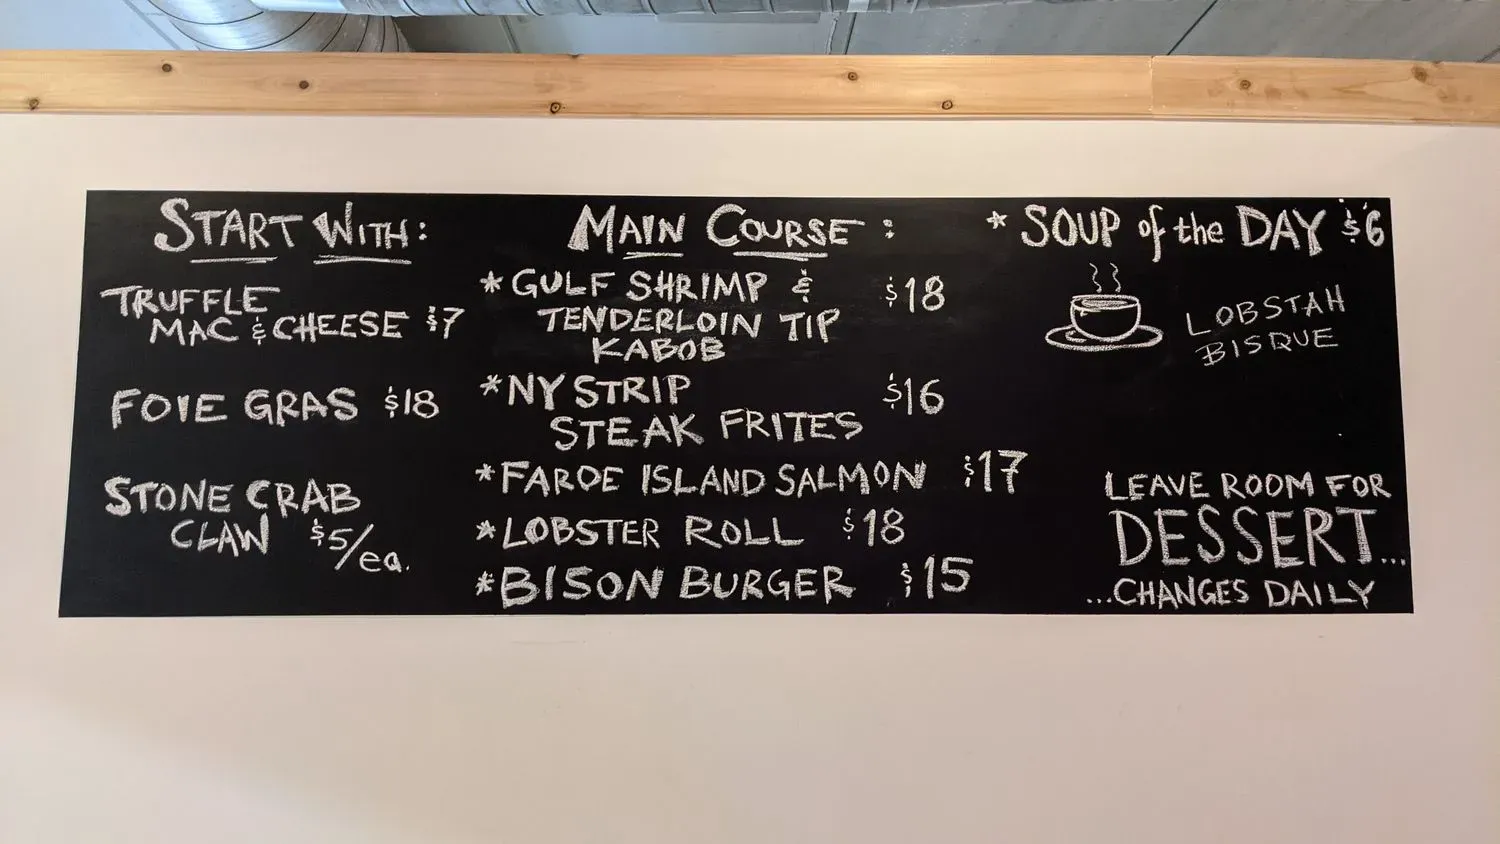 START WITH:
TRUFFLE
MAC & CHEESE $7
FOIE GRAS $18
STONE CRAB
CLAW $5/ea.
MAIN COURSE:
*GULF SHRIMP & $18
TENDERLOIN TIP
KABOB
*NY STRIP $16
STEAK FRITES
*FAROE ISLAND SALMON $17
*LOBSTER ROLL $18
*BISON BURGER $15
* SOUP of the DAY $6
LOBSTAH
BISQUE
LEAVE ROOM FOR
DESSERT...
...CHANGES DAILY